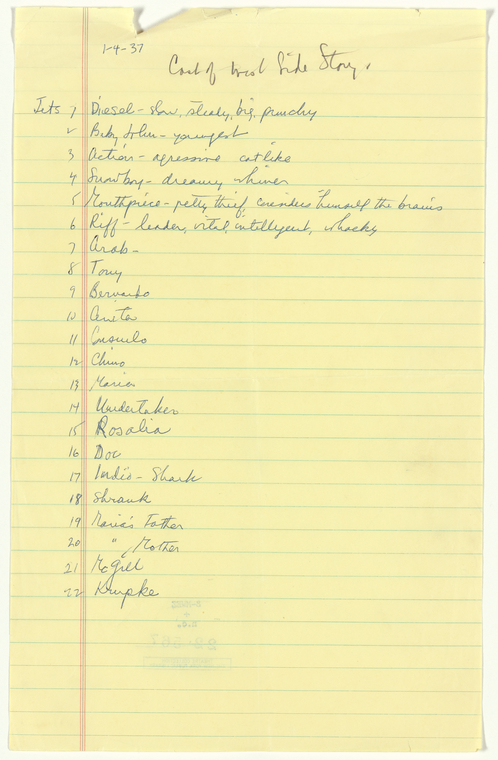 1-4-37
Cast of West Side Story.
Jets 1 Diesel - slow, steady, big, punchy
2 Baby John - youngest
3 Action - agressive catlike
4 Snowboy - dreamy whiner
5 Mouthpiece - petty thief considers himself the brains
6 Riff - leader, vital, intelligent, whacky
7 Arab -
8 Tony
9 Bernardo
10 Anita
11 Consuelo
12 Chino
13 Maria
14 Undertaker
15 Rosalia
16 Doc
17 Indio - Shark
18 Shrank
19 Maria's Father
20 " Mother
21 McGill
22 Krupke